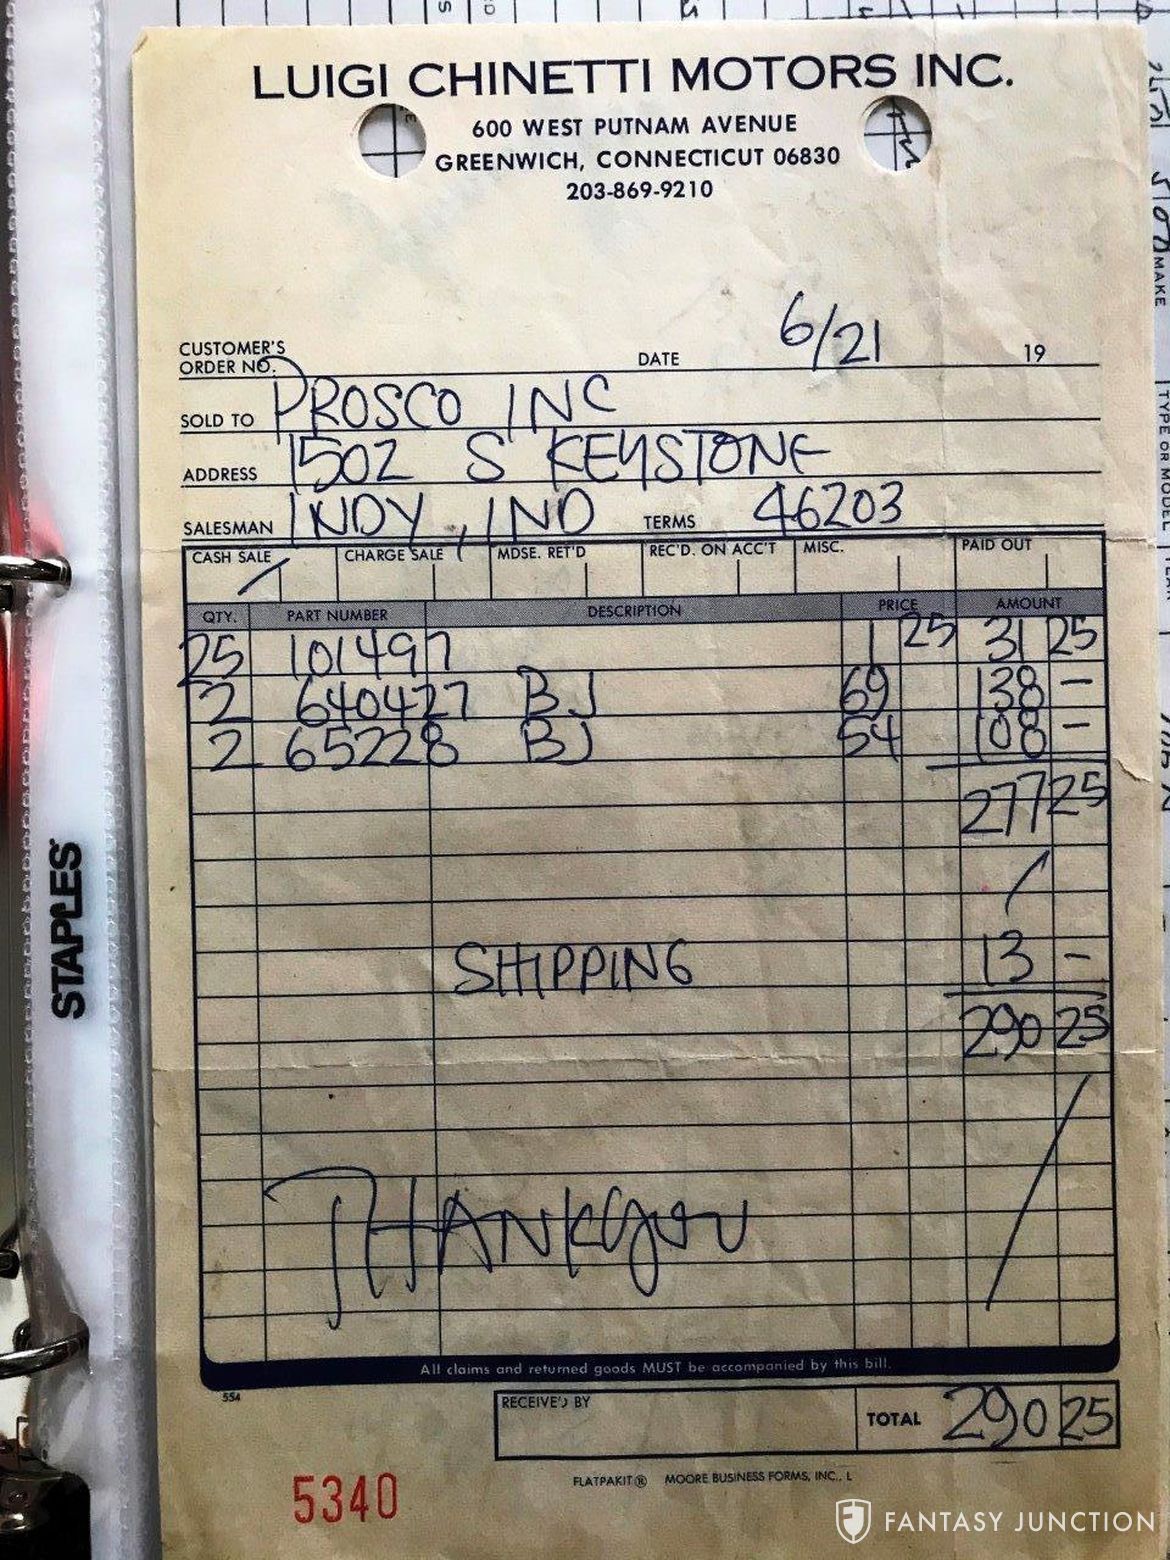 LUIGI CHINETTI MOTORS INC.
600 WEST PUTNAM AVENUE
GREENWICH, CONNECTICUT 06830
203-869-9210
CUSTOMER'S
ORDER NO. DATE 6/21 19
SOLD TO PROSCO INC
ADDRESS 1502 S KEYSTONE
SALESMAN INDY, IND TERMS 46203
CASH SALE / CHARGE SALE MDSE. RET'D REC'D. ON ACC'T MISC. PAID OUT
QTY. PART NUMBER DESCRIPTION PRICE AMOUNT
25 101497 1 25 31 25
2 640427 BJ 69 138 –
2 65228 BJ 54 108 –
277 25
SHIPPING 13 –
290 25
THANK you
All claims and returned goods MUST be accompanied by this bill.
554
RECEIVED BY TOTAL 290 25
FLATPAKIT® MOORE BUSINESS FORMS, INC., L
5340
STAPLES
MAKE
TYPE OR MODEL
FANTASY JUNCTION